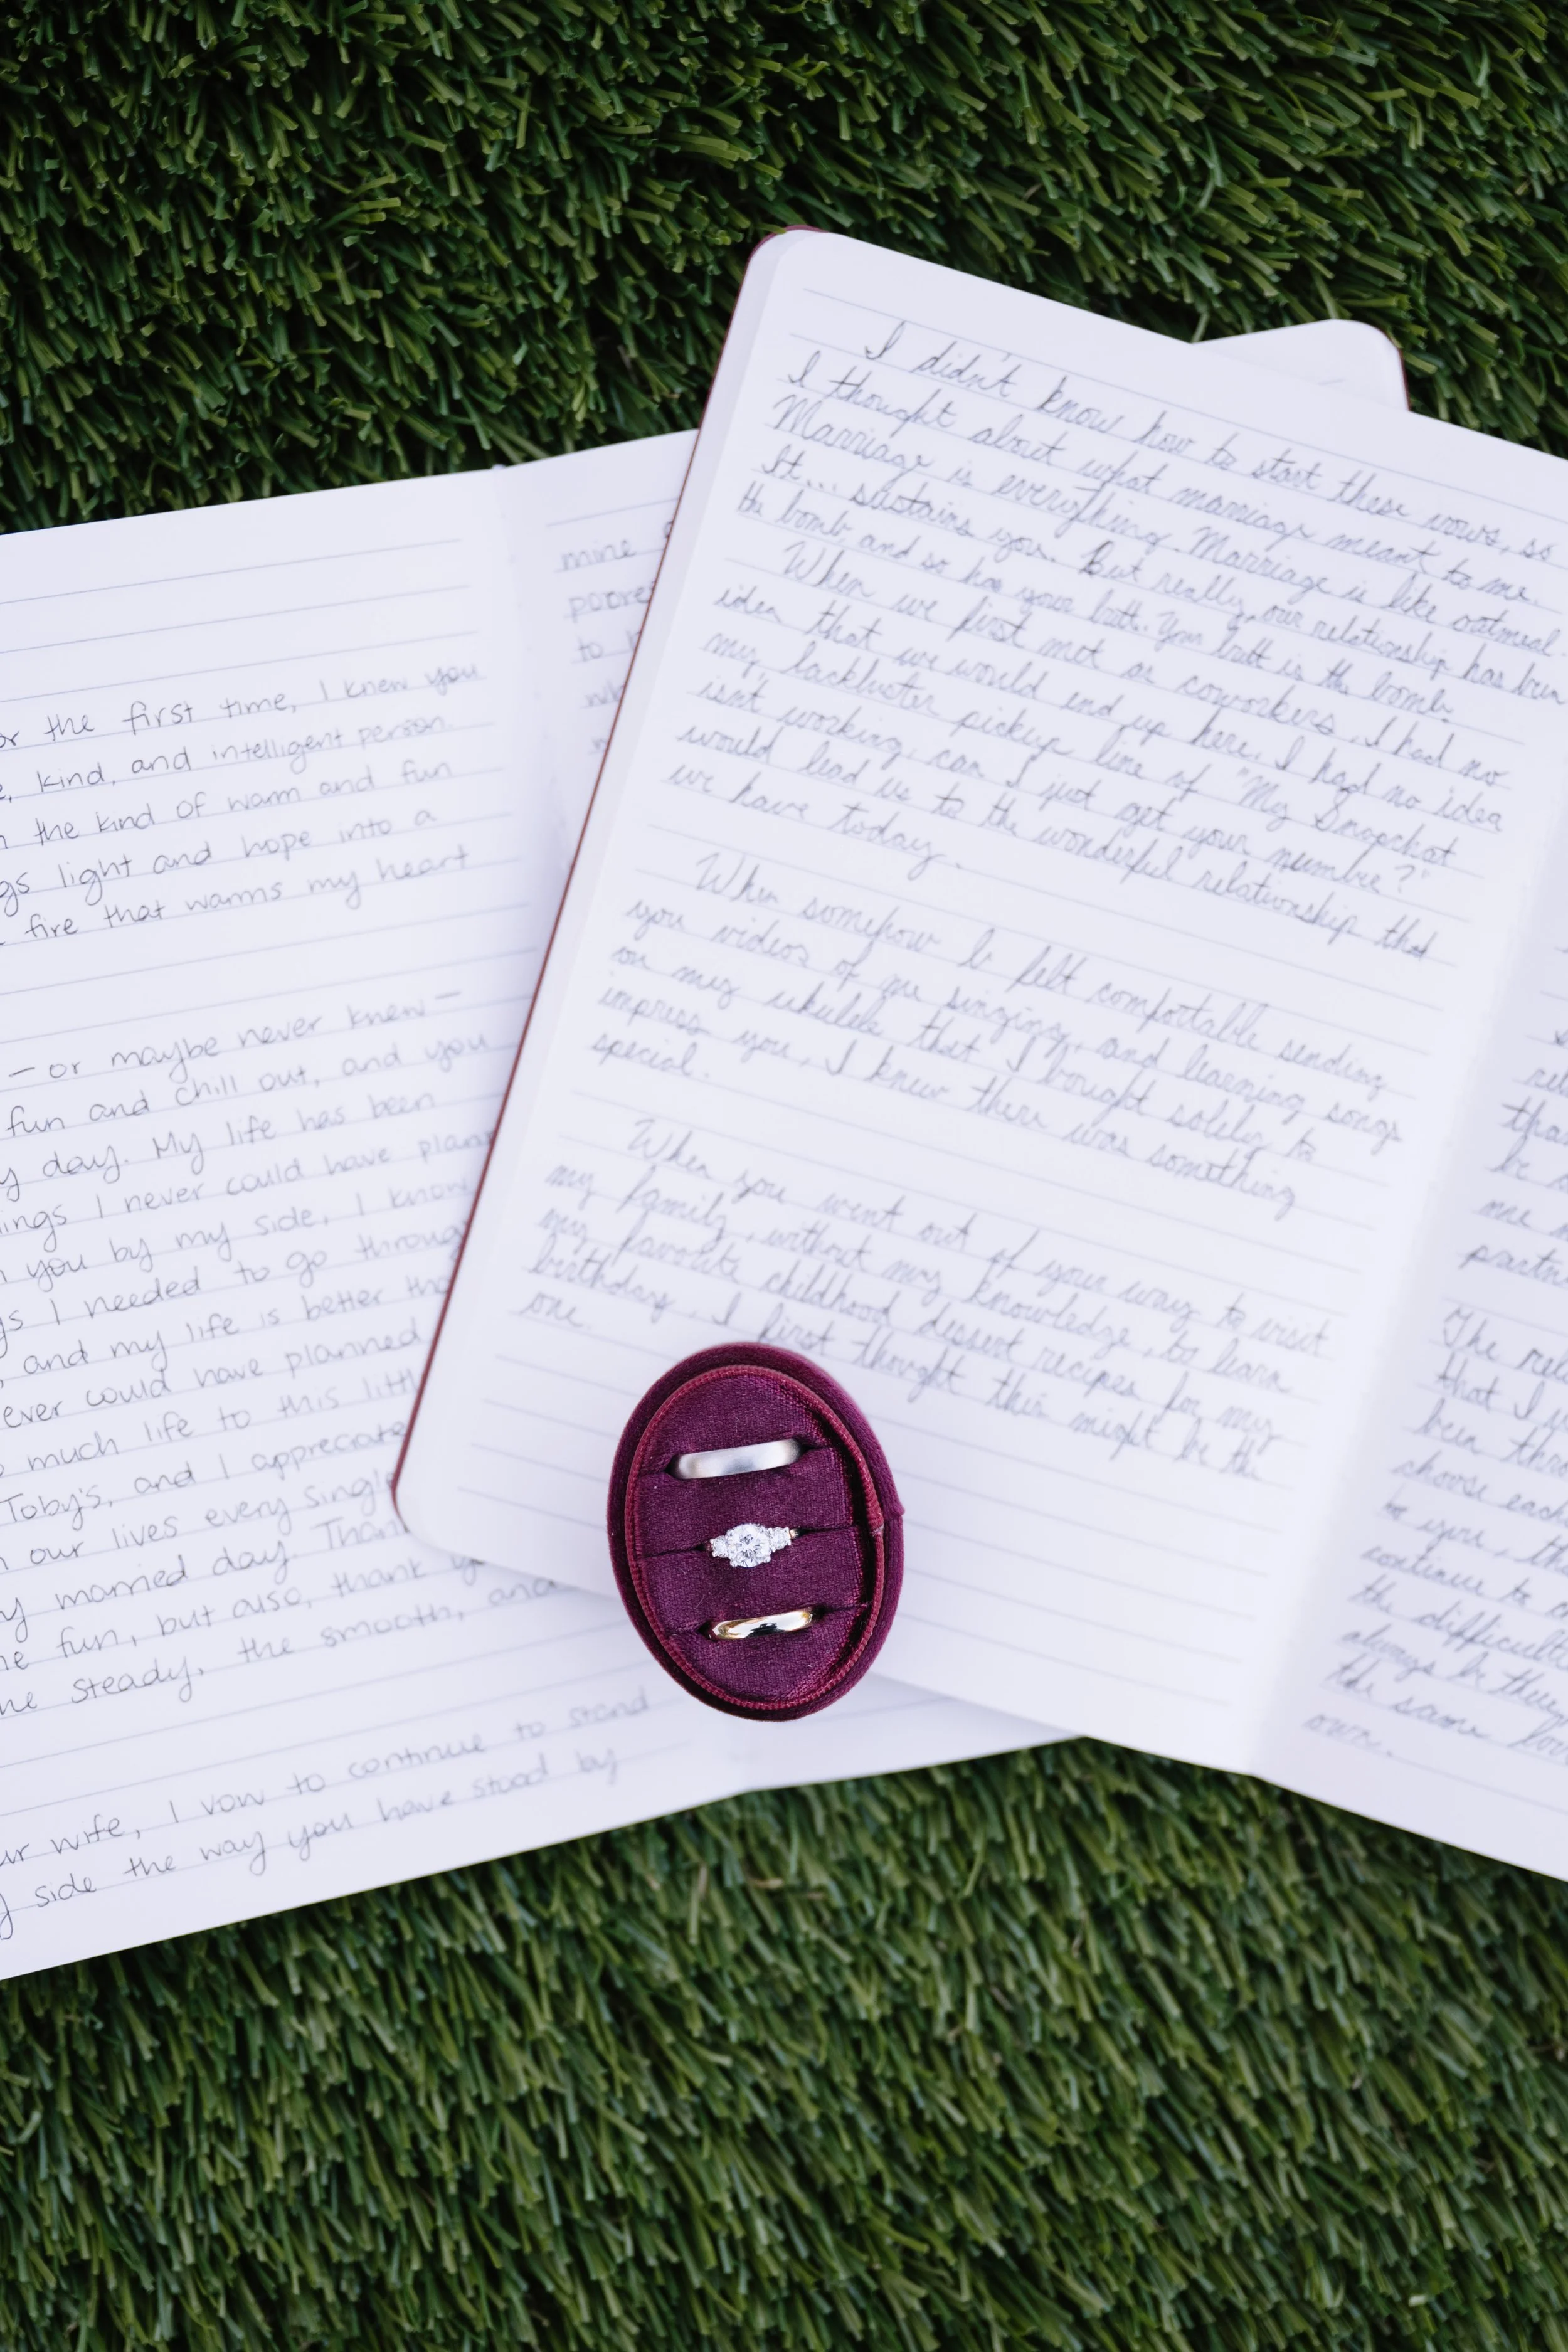 or the first time, I knew you
kind, and intelligent person.
the kind of warm and fun
gs light and hope into a
fire that warms my heart
— or maybe never knew —
fun and chill out, and you
day. My life has been
ings I never could have plann
you by my side, I know
I needed to go throug
and my life is better tha
ever could have planned
much life to this littl
Toby's, and I appreciate
our lives every single
married day. Than
fun, but also, thank y
steady, the smooth, and
ur wife, I vow to continue to stand
side the way you have stood by
mine
poore
to
wh
I didn't know how to start these vows, so
I thought about what marriage meant to me.
Marriage is everything. Marriage is like oatmeal.
It... sustains you. But really, our relationship has been
the bomb, and so has your butt. Your butt is the bomb.
When we first met as coworkers, I had no
idea that we would end up here. I had no idea
my lackluster pickup line of "My Snapchat
isn't working, can I just get your number?"
would lead us to the wonderful relationship that
we have today.
When somehow I felt comfortable sending
you videos of me singing, and learning songs
on my ukulele that I bought solely to
impress you, I knew there was something
special.
When you went out of your way to visit
my family, without my knowledge, to learn
my favorite childhood dessert recipes for my
birthday, I first thought this might be the
one.
rel
tha
be
me
partn
The rel
that I
been thro
choose each
to you, th
continue to
the difficult
always be ther
the same lov
own.